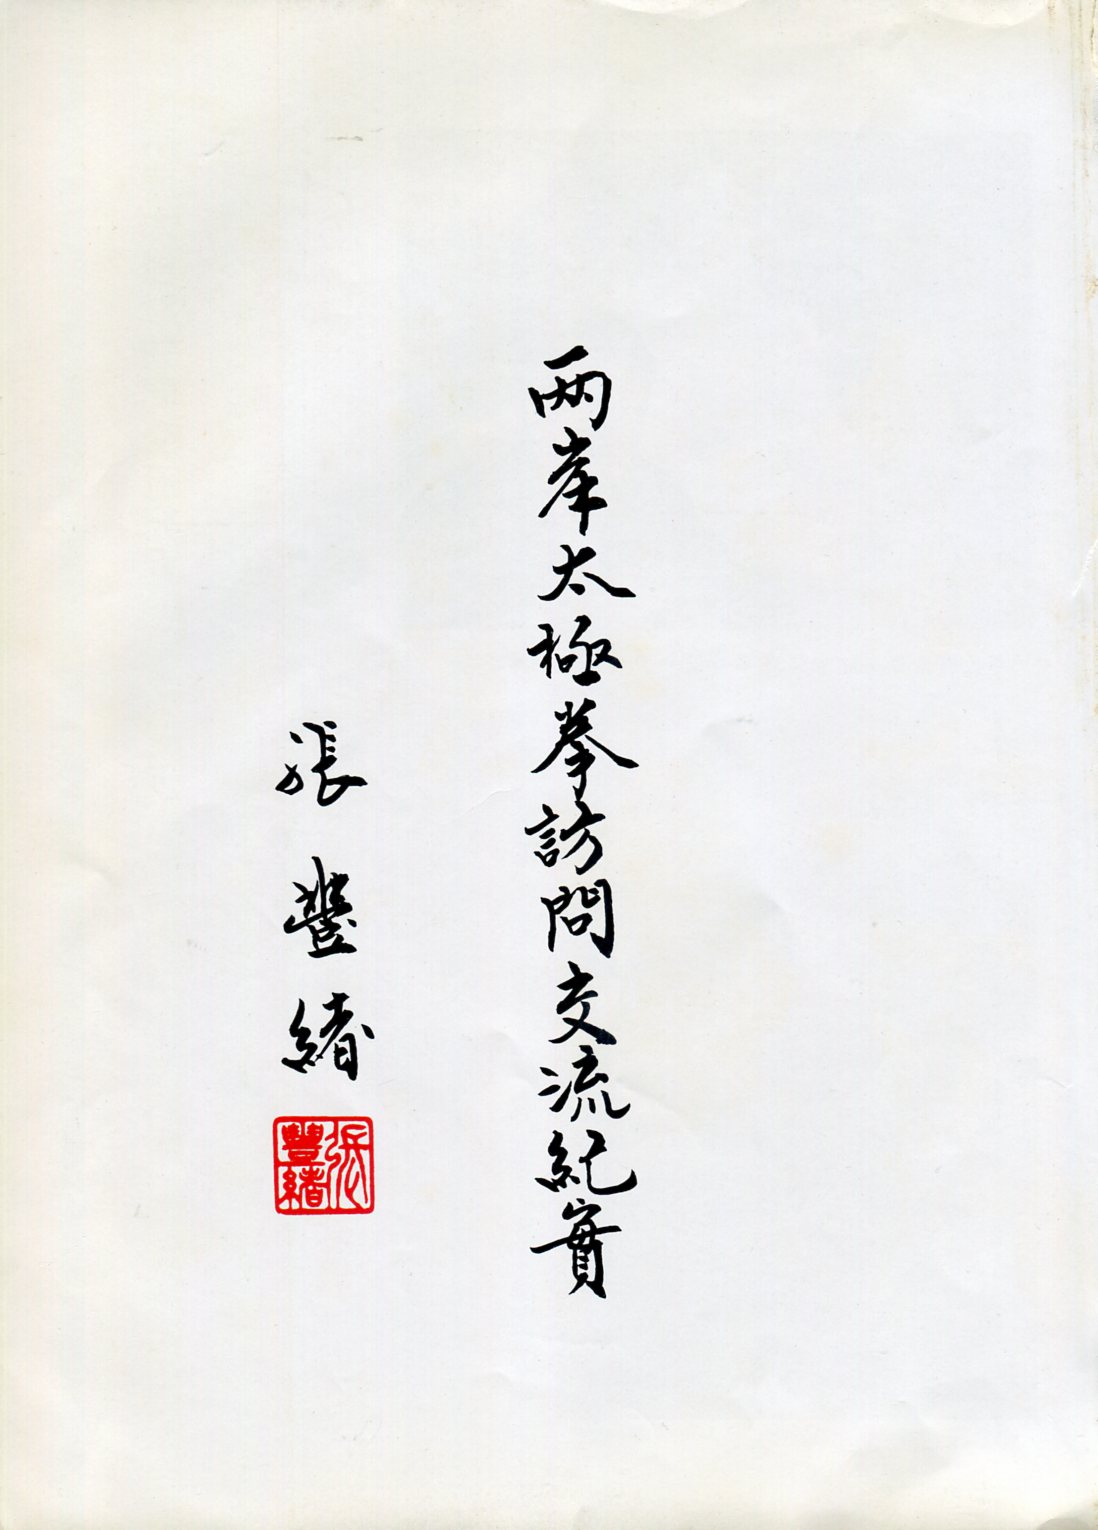 両岸太極拳訪問交流紀實
張豐緒
張豐緒